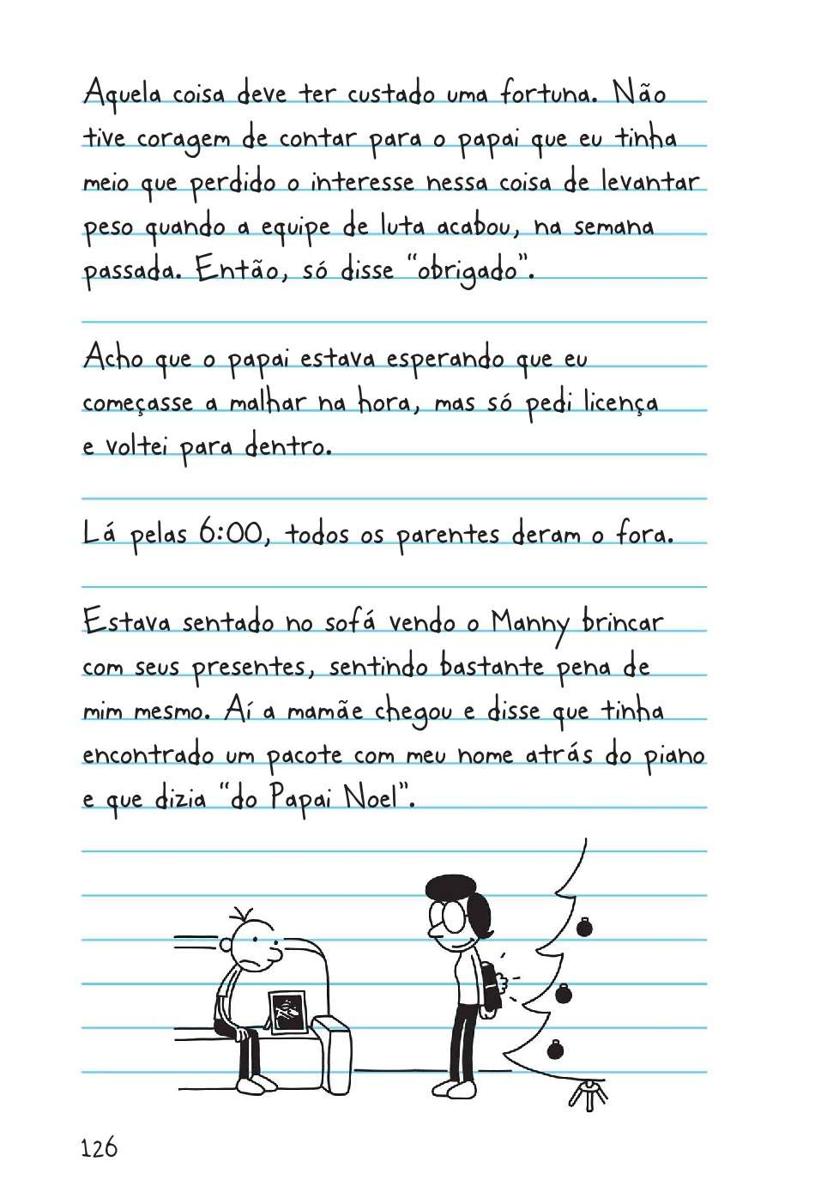 Aquela coisa deve ter custado uma fortuna. Não
tive coragem de contar para o papai que eu tinha
meio que perdido o interesse nessa coisa de levantar
peso quando a equipe de luta acabou, na semana
passada. Então, só disse “obrigado”.
Acho que o papai estava esperando que eu
começasse a malhar na hora, mas só pedi licença
e voltei para dentro.
Lá pelas 6:00, todos os parentes deram o fora.
Estava sentado no sofá vendo o Manny brincar
com seus presentes, sentindo bastante pena de
mim mesmo. Aí a mamãe chegou e disse que tinha
encontrado um pacote com meu nome atrás do piano
e que dizia “do Papai Noel”.
126